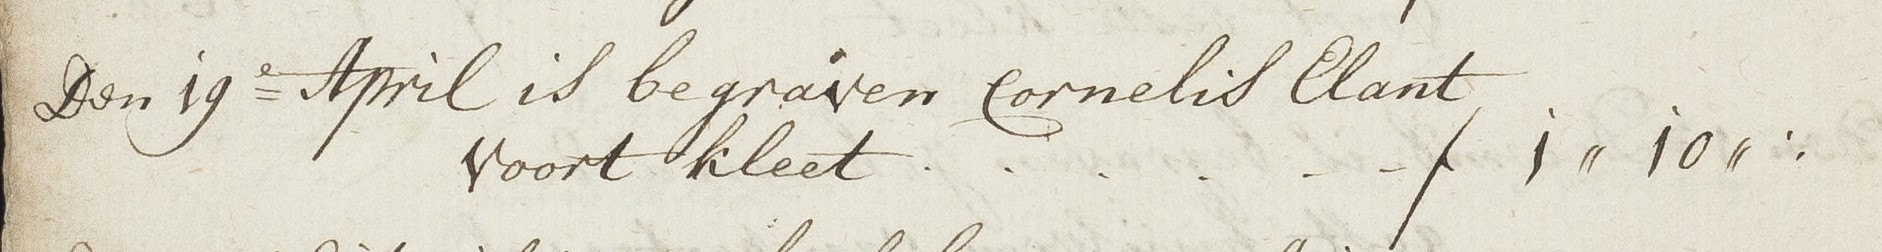 Den 19e April is begraven Cornelis Elant
voort kleet . . . . - - f 1 " 10 " :